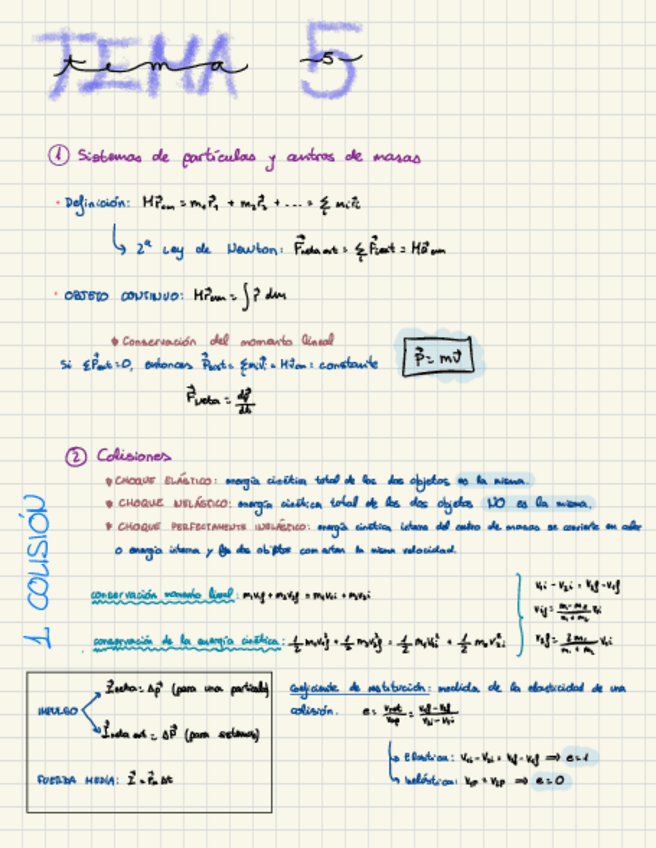 TEMA 5
tema 5
① Sistemas de partículas y centros de masas
• Definición: M r⃗cm = m₁r⃗₁ + m₂r⃗₂ + .... = Σ mᵢr⃗ᵢ
↳ 2ª Ley de Newton: F⃗neta ext = Σ F⃗ᵢext = M a⃗cm
• OBJETO CONTINUO: M r⃗cm = ∫ r⃗ dm
Conservación del momento lineal
Si ΣF⃗ext = 0, entonces = Σmᵢv⃗ᵢ = M v⃗cm = constante
p⃗ = mv⃗
F⃗neta = dp⃗/dt
② Colisiones
CHOQUE ELÁSTICO: energía cinética total de los dos objetos es la misma.
CHOQUE INELÁSTICO: energía cinética total de los dos objetos NO es la misma.
CHOQUE PERFECTAMENTE INELÁSTICO: energía cinética interna del centro de masas se convierte en calor
o energía interna y los dos objetos comparten la misma velocidad.
1 COLISIÓN
conservación momento lineal: m₁v₁f + m₂v₂f = m₁v₁i + m₂v₂i
conservación de la energía cinética: ½ m₁v₁f² + ½ m₂v₂f² = ½ m₁v₁i² + ½ m₂v₂i²
v₁i - v₂i = v₂f - v₁f
v₁f = (m₁ - m₂)/(m₁ + m₂) v₁i
v₂f = 2m₁/(m₁ + m₂) v₁i
IMPULSO
I⃗neta = Δp⃗ (para una partícula)
I⃗neta ext = Δp⃗ (para sistemas)
FUERZA MEDIA: I⃗ = F⃗m Δt
coeficiente de restitución: medida de la elasticidad de una
colisión. e = =
↳ Elástica: v₁i - v₂i = v₂f - v₁f ⇒ e = 1
↳ Inelástica: ⇒ e = 0